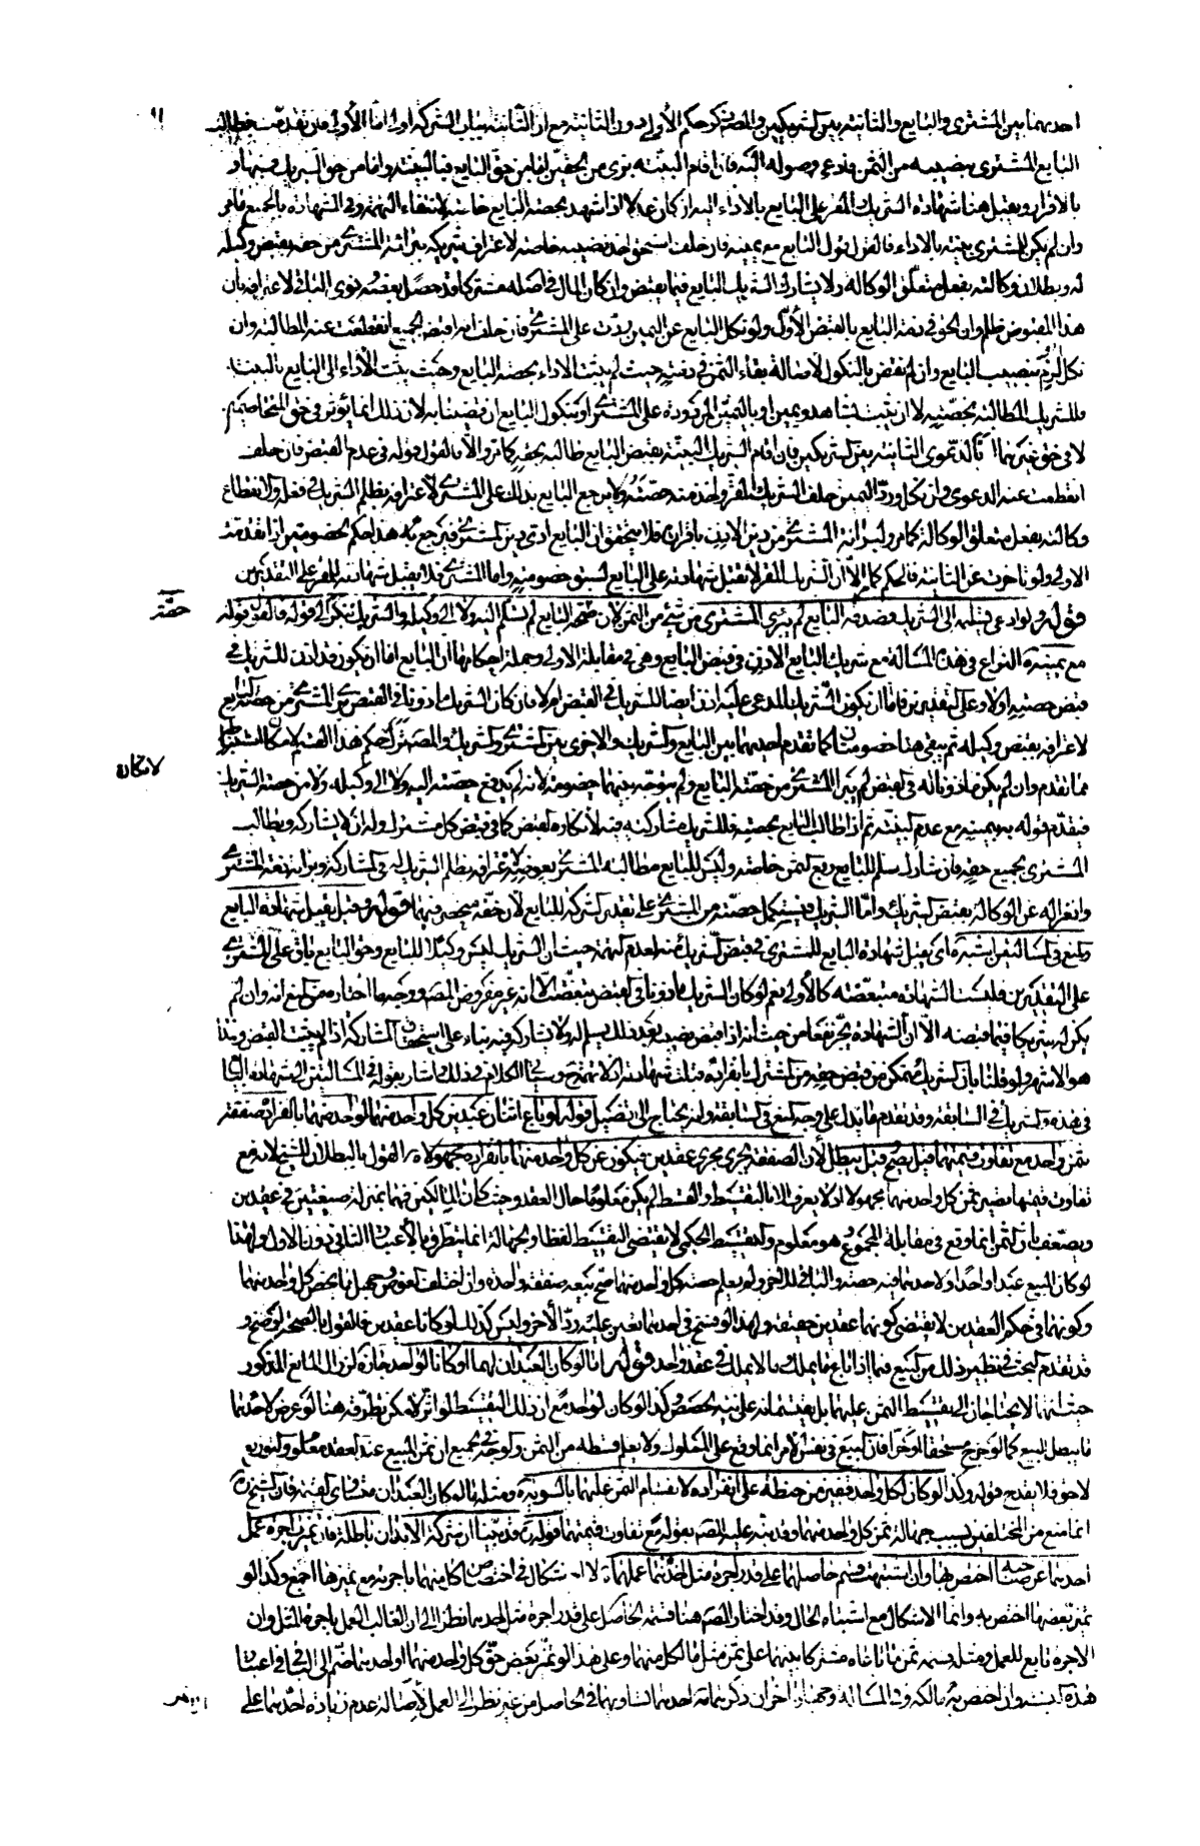 احدهما بين المشتري والبايع والثانية بين الشريكين والمصنف ذكر حكم الأولى دون الثانية مع ان الثانية بباب الشركة اولى اما الأولى فان تقدمت فطالب
البايع المشتري بنصيبه من الثمن فادعى وصوله اليه فان اقام البينة برئ من الحقين اما من حق البايع فبالبينة واما من حق الشريك فبها و
بالاقرار ويقبل هنا شهادة الشريك المقر على البايع بالاداء اليه ان كان عدلا اذا شهد بحصة البايع خاصة لانتفاء التهمة وفي الشهادة بالجميع
وان لم يكن للمشتري بينة بالاداء فالقول قول البايع مع يمينه فان حلف استحق اخذ نصيبه خاصة لاعتراف شريكه ببرائة المشتري من حقه بقبض وكيله
له وبطلان وكالته بفعل متعلق الوكالة ولا يشارك الشريك البايع فيما يقبض وان كان المال في اصله مشتركا وقد حصل بعضه وتوى الباقي لاعترافه بان
هذا المقبوض ظلم وان الحق في ذمة البايع بالقبض الأول ولو نكل البايع عن اليمين ردت على المشتري فان حلف انه اقبض الجميع انقطعت عنه المطالبة وان
نكل الزم بنصيب البايع وان لم نقض بالنكول لاصالة بقاء الثمن في ذمته حيث لم يثبت الاداء بحصة البايع وحيث يثبت الأداء الى البايع بالبينة
فللشريك المطالبة بحصته لا ان يثبت بشاهد ويمين او باليمين المردودة على المشتري او بنكول البايع ان قضينا به لان ذلك انما يؤثر في حق المتخاصمين
لا في حق غيرهما اما الدعوى الثانية بين الشريكين فان اقام الشريك البينة بقبض البايع طالبه بحقه كما مر والا فالقول قوله في عدم القبض فان حلف
انقطعت عنه الدعوى وان نكل او رد اليمين حلف الشريك المقر واخذ منه حصته ولا يرجع البايع بذلك على المشتري لاعترافه بظلم الشريك في فعله ولانقطاع
وكالته بفعل متعلق الوكالة كما مر ولبرائة المشتري من دين الاذن باقراره فلا يستحق ان البايع ادى دين المشتري فيرجع به هذا حكم الخصومتين اذا تقدمت
الاولى ولو تأخرت عن الثانية فالحكم كما مر الا ان الشريك المقر لا تقبل شهادته على البايع لسبق خصومته واما المشتري فلا يقبل شهادته للمقر على التقديرين
قوله ولو ادعى تسليمه الى الشريك وصدقه البايع لم يبرئ المشتري من شئ من الثمن لان حصة البايع لم تسلم اليه ولا الى وكيله والشريك ينكر في قوله فالقول قوله
حصته
مع يمينه النزاع في هذه المسألة مع شريك البايع الاذن في قبض البايع وهي في مقابلة الاولى وجملة احكامها ان البايع اما ان يكون قد اذن للشريك في
قبض حصته او لا وعلى التقديرين فاما ان يكون الشريك المدعى عليه اذن ايضا للشريك في القبض ام لا فان كان الشريك ماذونا في القبض برئ المشتري من حصة البايع
لاعترافه بقبض وكيله ثم يبقى هنا خصومتان كما تقدم احديهما بين البايع والشريك والاخرى بين المشتري والشريك والمصنف ترك حكم هذا القسم لامكان استنباطه
لامكان
مما تقدم وان لم يكن ماذونا له في القبض لم يبرأ المشتري من حصة البايع ولم يتوجه بينهما خصومة لانه لم يدع دفع حصته اليه ولا الى وكيله ولا من حصة الشريك
فيقدم قوله بيمينه مع عدم البينة ثم اذا طالب البايع بحصته فللشريك مشاركته فيه لانكاره القبض كما في قبض كل مشترك وله ان لا يشاركه ويطالب
المشتري بجميع حقه فان شارك سلم للبايع ربع الثمن خاصة وليس للبايع مطالبة المشتري بعوضه لاعترافه بظلم الشريك له في المشاركة وبرائة ذمة المشتري
وانعزاله عن الوكالة بقبض الشريك واما الشريك فيستكمل حصته من المشتري على تقدير شركة البايع لان حقه منحصر فيهما قوله وقيل تقبل شهادة البايع
والمنع في المسألتين اشبه اي تقبل شهادة البايع للمشتري في قبض الشريك منه لعدم التهمة حيث ان الشريك ليس وكيلا للبايع وحق البايع باق على المشتري
على التقديرين فليست الشهادة متبعضة كالأولى نعم لو كان الشريك ماذونا في القبض تبعضت الا انه غير مفروض المصنف ووجه ما اختاره من المنع انه وان لم
يكن شريكا فيما قبضه الا ان الشهادة تجر نفعا من حيث انه اذا قبض نصيبه بعد ذلك يسلم له ولا يشاركه فيه بناء على استحقاق المشاركة اذا لم يثبت القبض وهذا
هو الاشهر ولو قلنا بان الشريك يتمكن من قبض حقه من المشترك بانفراده قبلت شهادته اذ لا تهمة وسيأتي الكلام في ذلك واشار بقوله في المسألتين الى شهادة البايع
في هذه والشريك في السابقة وقد تقدم ما يدل على وجه المنع في السابقة وانه يحتاج الى تفصيل قوله لو باع اثنان عبدين كل واحد منهما لواحد منهما بانفراده صفقة
بثمن واحد مع تفاوت قيمتهما قيل يصح وقيل يبطل لأن الصفقة تجري مجرى عقدين فيكون ثمن كل واحد منهما بانفراده مجهولا القول بالبطلان للشيخ لانه مع
تفاوت قيمتهما يصير ثمن كل واحد منهما مجهولا اذ لا يعرف الا بالتقسيط والقسط لم يكن معلوما حال العقد وحيث كان المالكين فهما بمنزلة صيغتين في عقدين
ويضعف بان الثمن انما وقع في مقابلة المجموع وهو معلوم والتقسيط الحكمي لا يقتضي التقسيط لفظا والجهالة انما يتطرق بالاعتبار الثاني دون الاول ولهذا
لو كان المبيع عبدا واحدا ولاحدهما فيه حصة والباقي للاخر ولم يعلم حصة كل واحد منهما صح بيعه صفقة واحدة وان اختلف العوض وجهل ما يخص كل واحد منهما
وكونهما في حكم العقدين لا يقتضي كونهما عقدين حقيقة ولهذا لو فسخ في احدهما بعيب عليه رد الأخر وليس كذلك لو كانا عقدين فالقول بالصحة اوضح و
قد تقدم البحث في نظير ذلك من البيع فيما اذا باع ما يملك وما لا يملك في عقد واحد قوله اما لو كان العبدان لهما او كانا لواحد جاز لان البايع المذكور
حيث انهما لا يحتاجان الى تقسيط الثمن عليهما بل يقتسمانه على نسبة الحصص وكذا لو كان لواحد مع ان ذلك التقسيط لو اثر لامكن تطرقه هنا لو عرض لاحدهما
ما يبطل البيع كما لو خرج مستحقا او حرا فان البيع في نفس الامر انما وقع على المملوك ولا يعلم قسطه من الثمن والوجه في الجميع ان ثمن المبيع عند العقد معلوم والتوزيع
لاحق فلا يقدح قوله وكذا لو كان لكل واحد قفيز من حنطة على انفراده لانقسام الثمن عليهما بالسوية ومثله ما لو كان العبدان متساوي القيمة فان الشيخ ره
انما منع من المختلفين بسبب جهالة ثمن كل واحد منهما وقد نبه عليه المصنف بقوله مع تفاوت قيمتهما قوله قد بينا ان شركة الابدان باطلة فان تميزت اجرة عمل
احدهما عن صاحبه اختص بها وان اشتبهت قسم حاصلهما على قدر اجرة مثل عملهما لا اشكال في اختصاص كل منهما باجرته مع تميزها اجمع وكذا لو
تميز بعضها اختص به وانما الاشكال مع اشتباه الحال وقد اختار المصنف هنا قسمة الحاصل على قدر اجرة مثل احدهما نظرا الى ان الغالب العمل باجرة المثل وان
الاجرة تابع للعمل ومثله قسمة ثمن ما باعاه مشتركا بينهما على ثمن مثل مالكل منهما وعلى هذا لو تميز بعض حق كل واحد منهما او احدهما ضم الى الباقي في اعتبار
هذه النسبة وان اختص به مالكه وفي المسألة وجهان اخران ذكرهما احدهما تساويهما في الحاصل من غير نظر الى العمل لاصالة عدم زيادة احدهما على